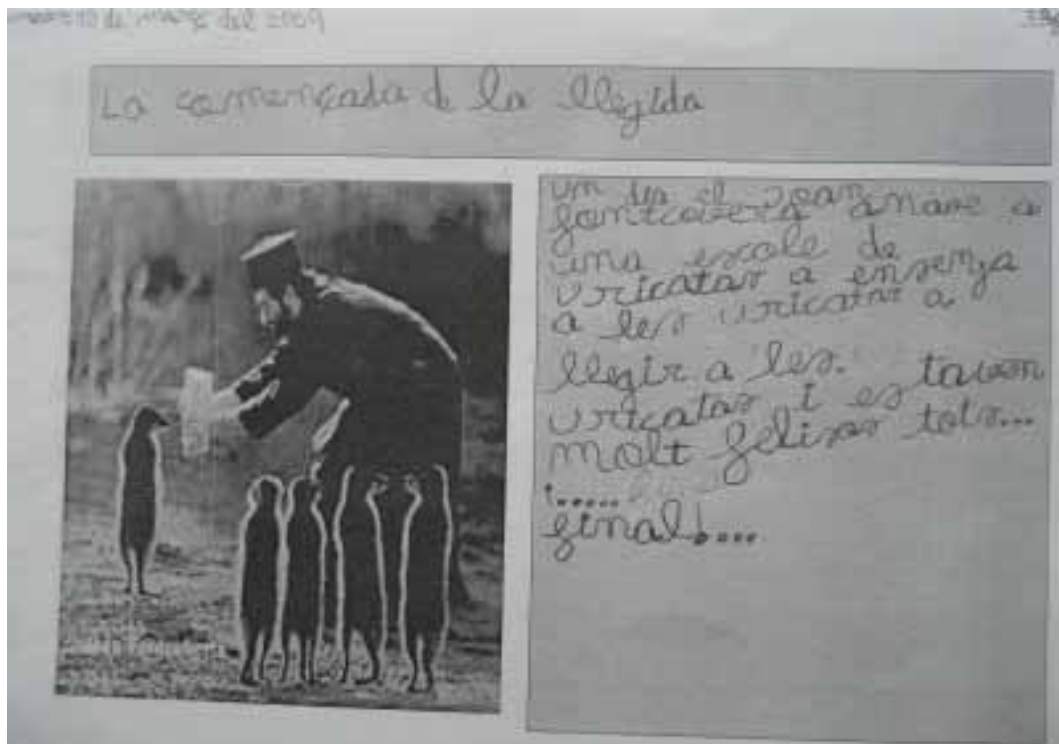 de març del 2009
La començada de la llegida
un dia el Joan
fontcuberta anava a
una escole de
uricatas a ensenya
a les uricatas a
llegir a les. tavem
uricatas i es
molt felisos tots...
i.....
final!...